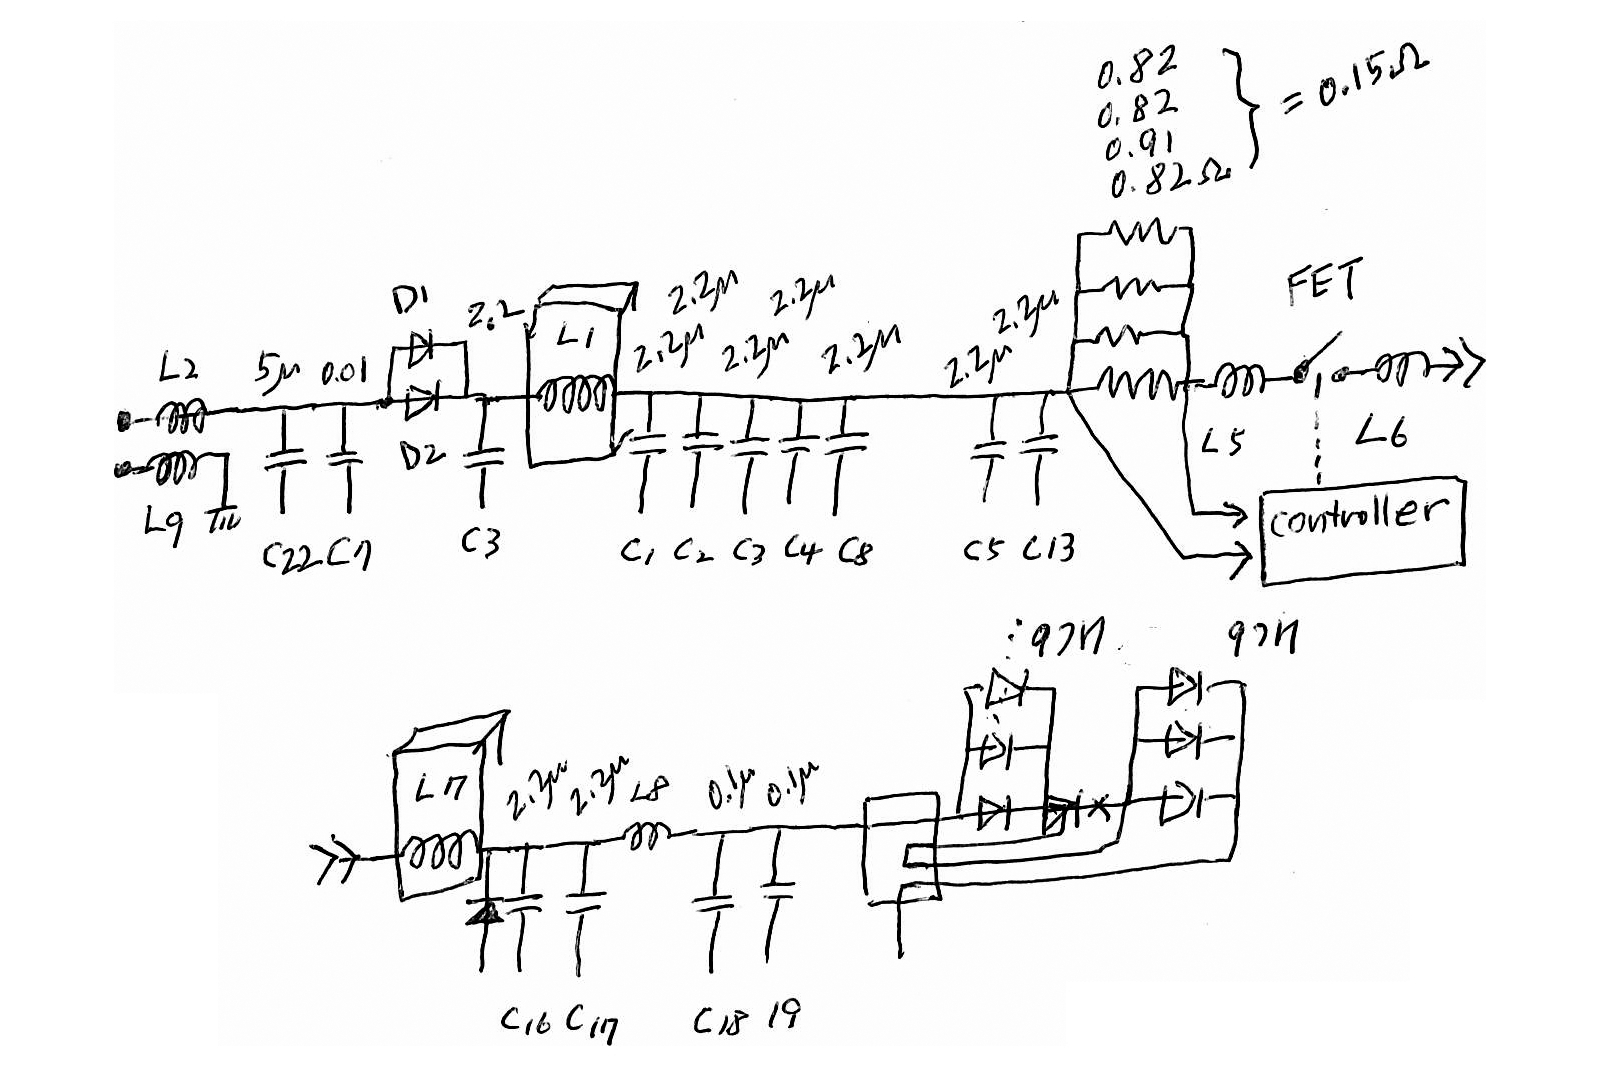 0.82
0.82
0.91
0.82Ω
= 0.15Ω
FET
D1
2.2
L1
2.2μ
2.2μ
2.2μ
2.2μ
2.2μ
2.2μ
2.2μ
L2
5μ
0.01
D2
L5
L6
L9
C22
C7
C3
C1
C2
C3
C4
C8
C5
C13
controller
L7
2.2μ
2.2μ
L8
0.1μ
0.1μ
C16
C17
C18
19